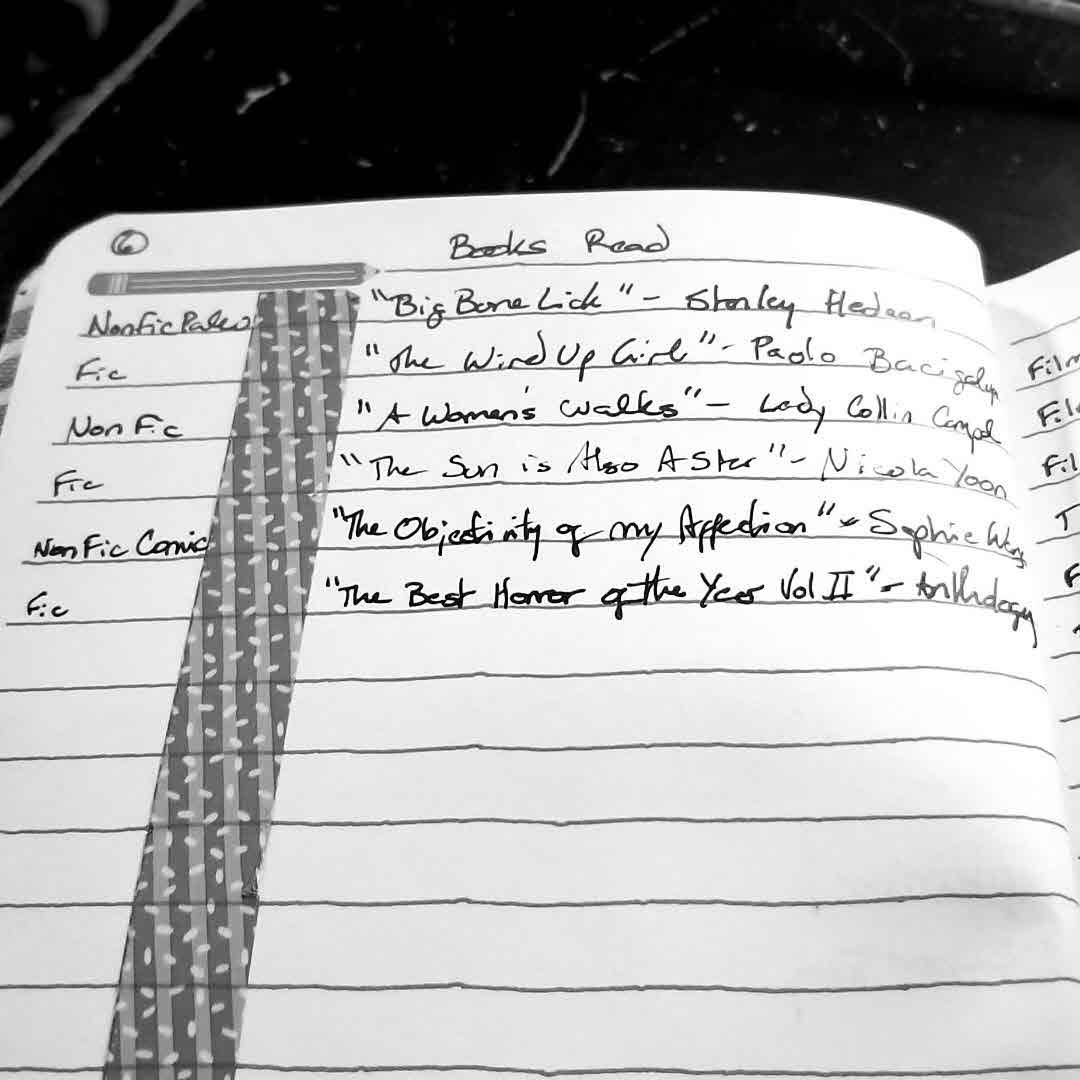 6
Books Read
NonFic Paleo "Big Bone Lick" - Stanley Hedeen
Fic "The Wind Up Girl" - Paolo Bacigalupi
Non Fic "A Women's Walks" - Lady Collin Campbl
Fic "The Sun is Also A Star" - Nicola Yoon
Non Fic Comic "The Objectivity of my Affection" - Sophie
Fic "The Best Horror of the Year Vol II" - Anthology
Film
Fil